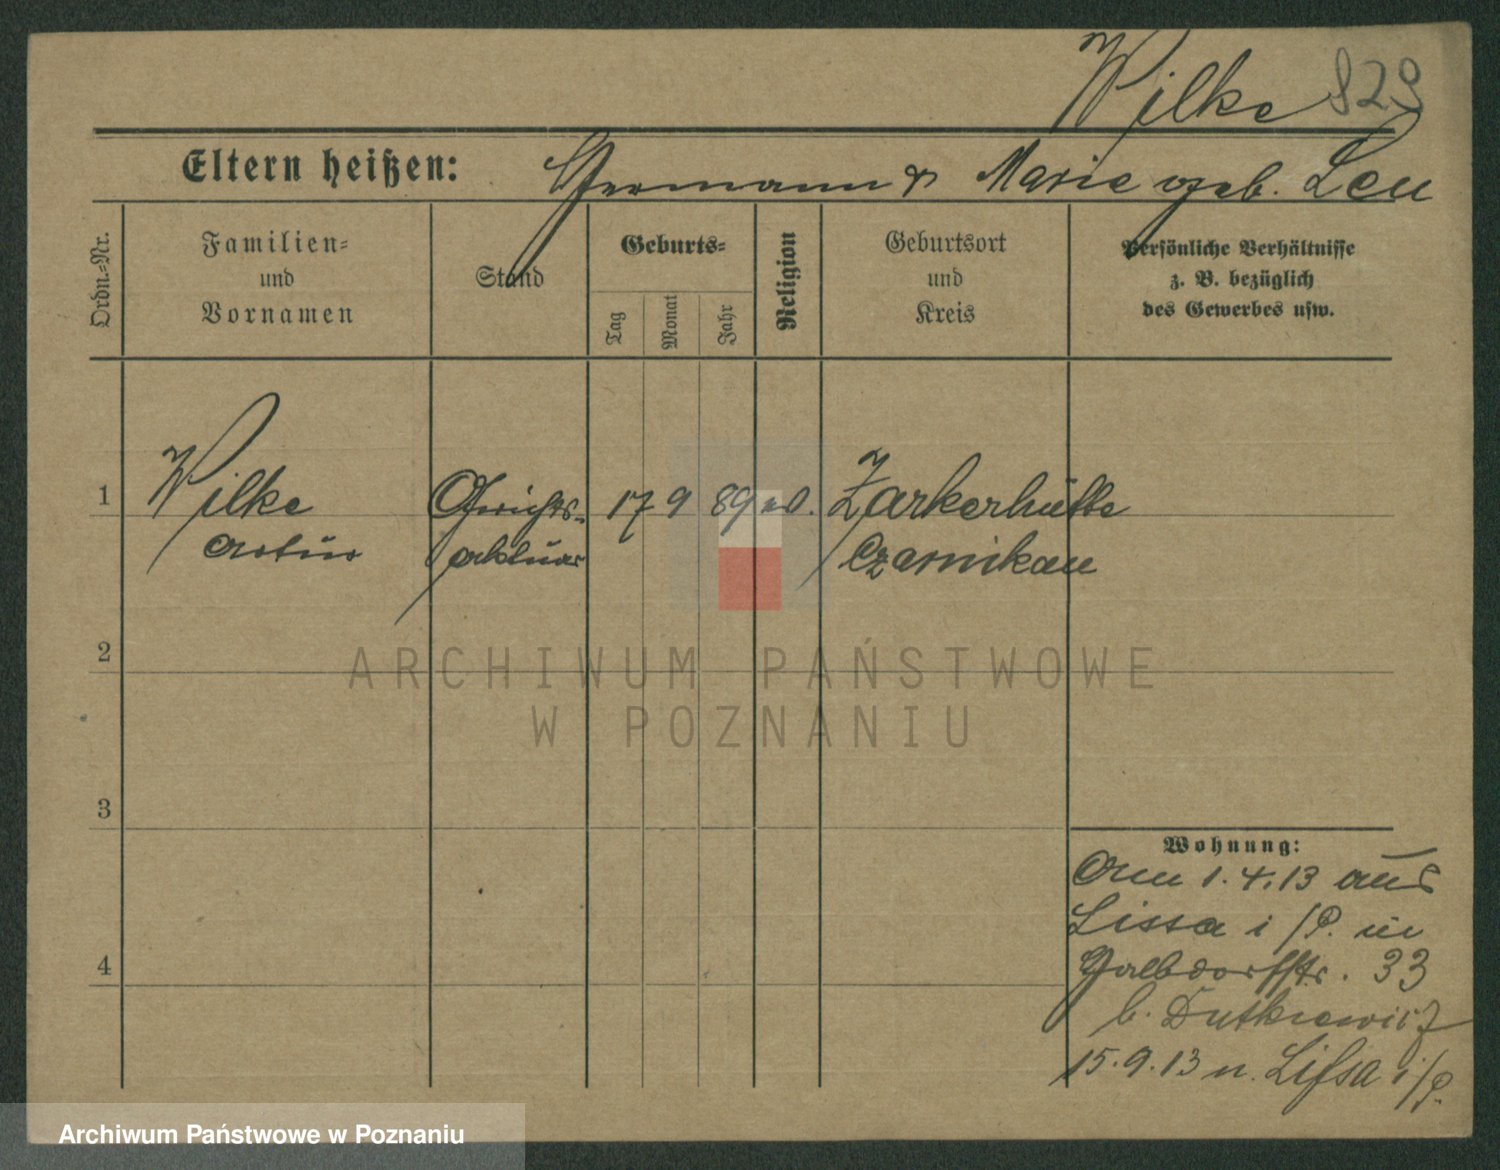 Wilke 829
Eltern heißen: Hermann & Marie geb. Leu
Ordn.=Nr.
Familien=
und
Vornamen
Stand
Geburts=
Tag
Monat
Jahr
Religion
Geburtsort
und
Kreis
Persönliche Verhältnisse
z. B. bezüglich
des Gewerbes usw.
1 Wilke Gerichts- 17 9 89 ev. Zarkerhütte
Artur aktuar Czarnikau
ARCHIWUM PAŃSTWOWE
W POZNANIU
2
3
4
Wohnung:
Am 1.4.13 aus
Lissa i/P. in
33
b. Dutkiewicz
15.9.13 n. Lissa i/P.
Archiwum Państwowe w Poznaniu